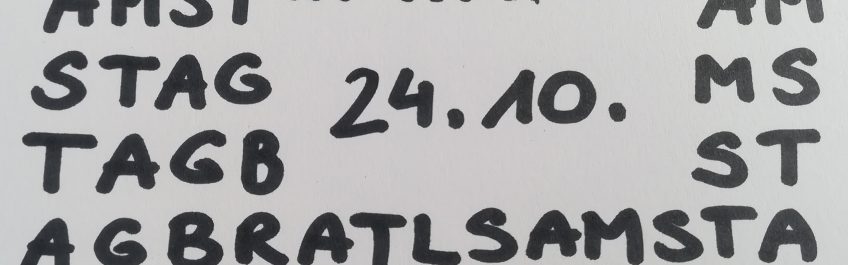 AMST AM
STAG 24.10. MS
TAGB ST
AGBRATLSAMSTA